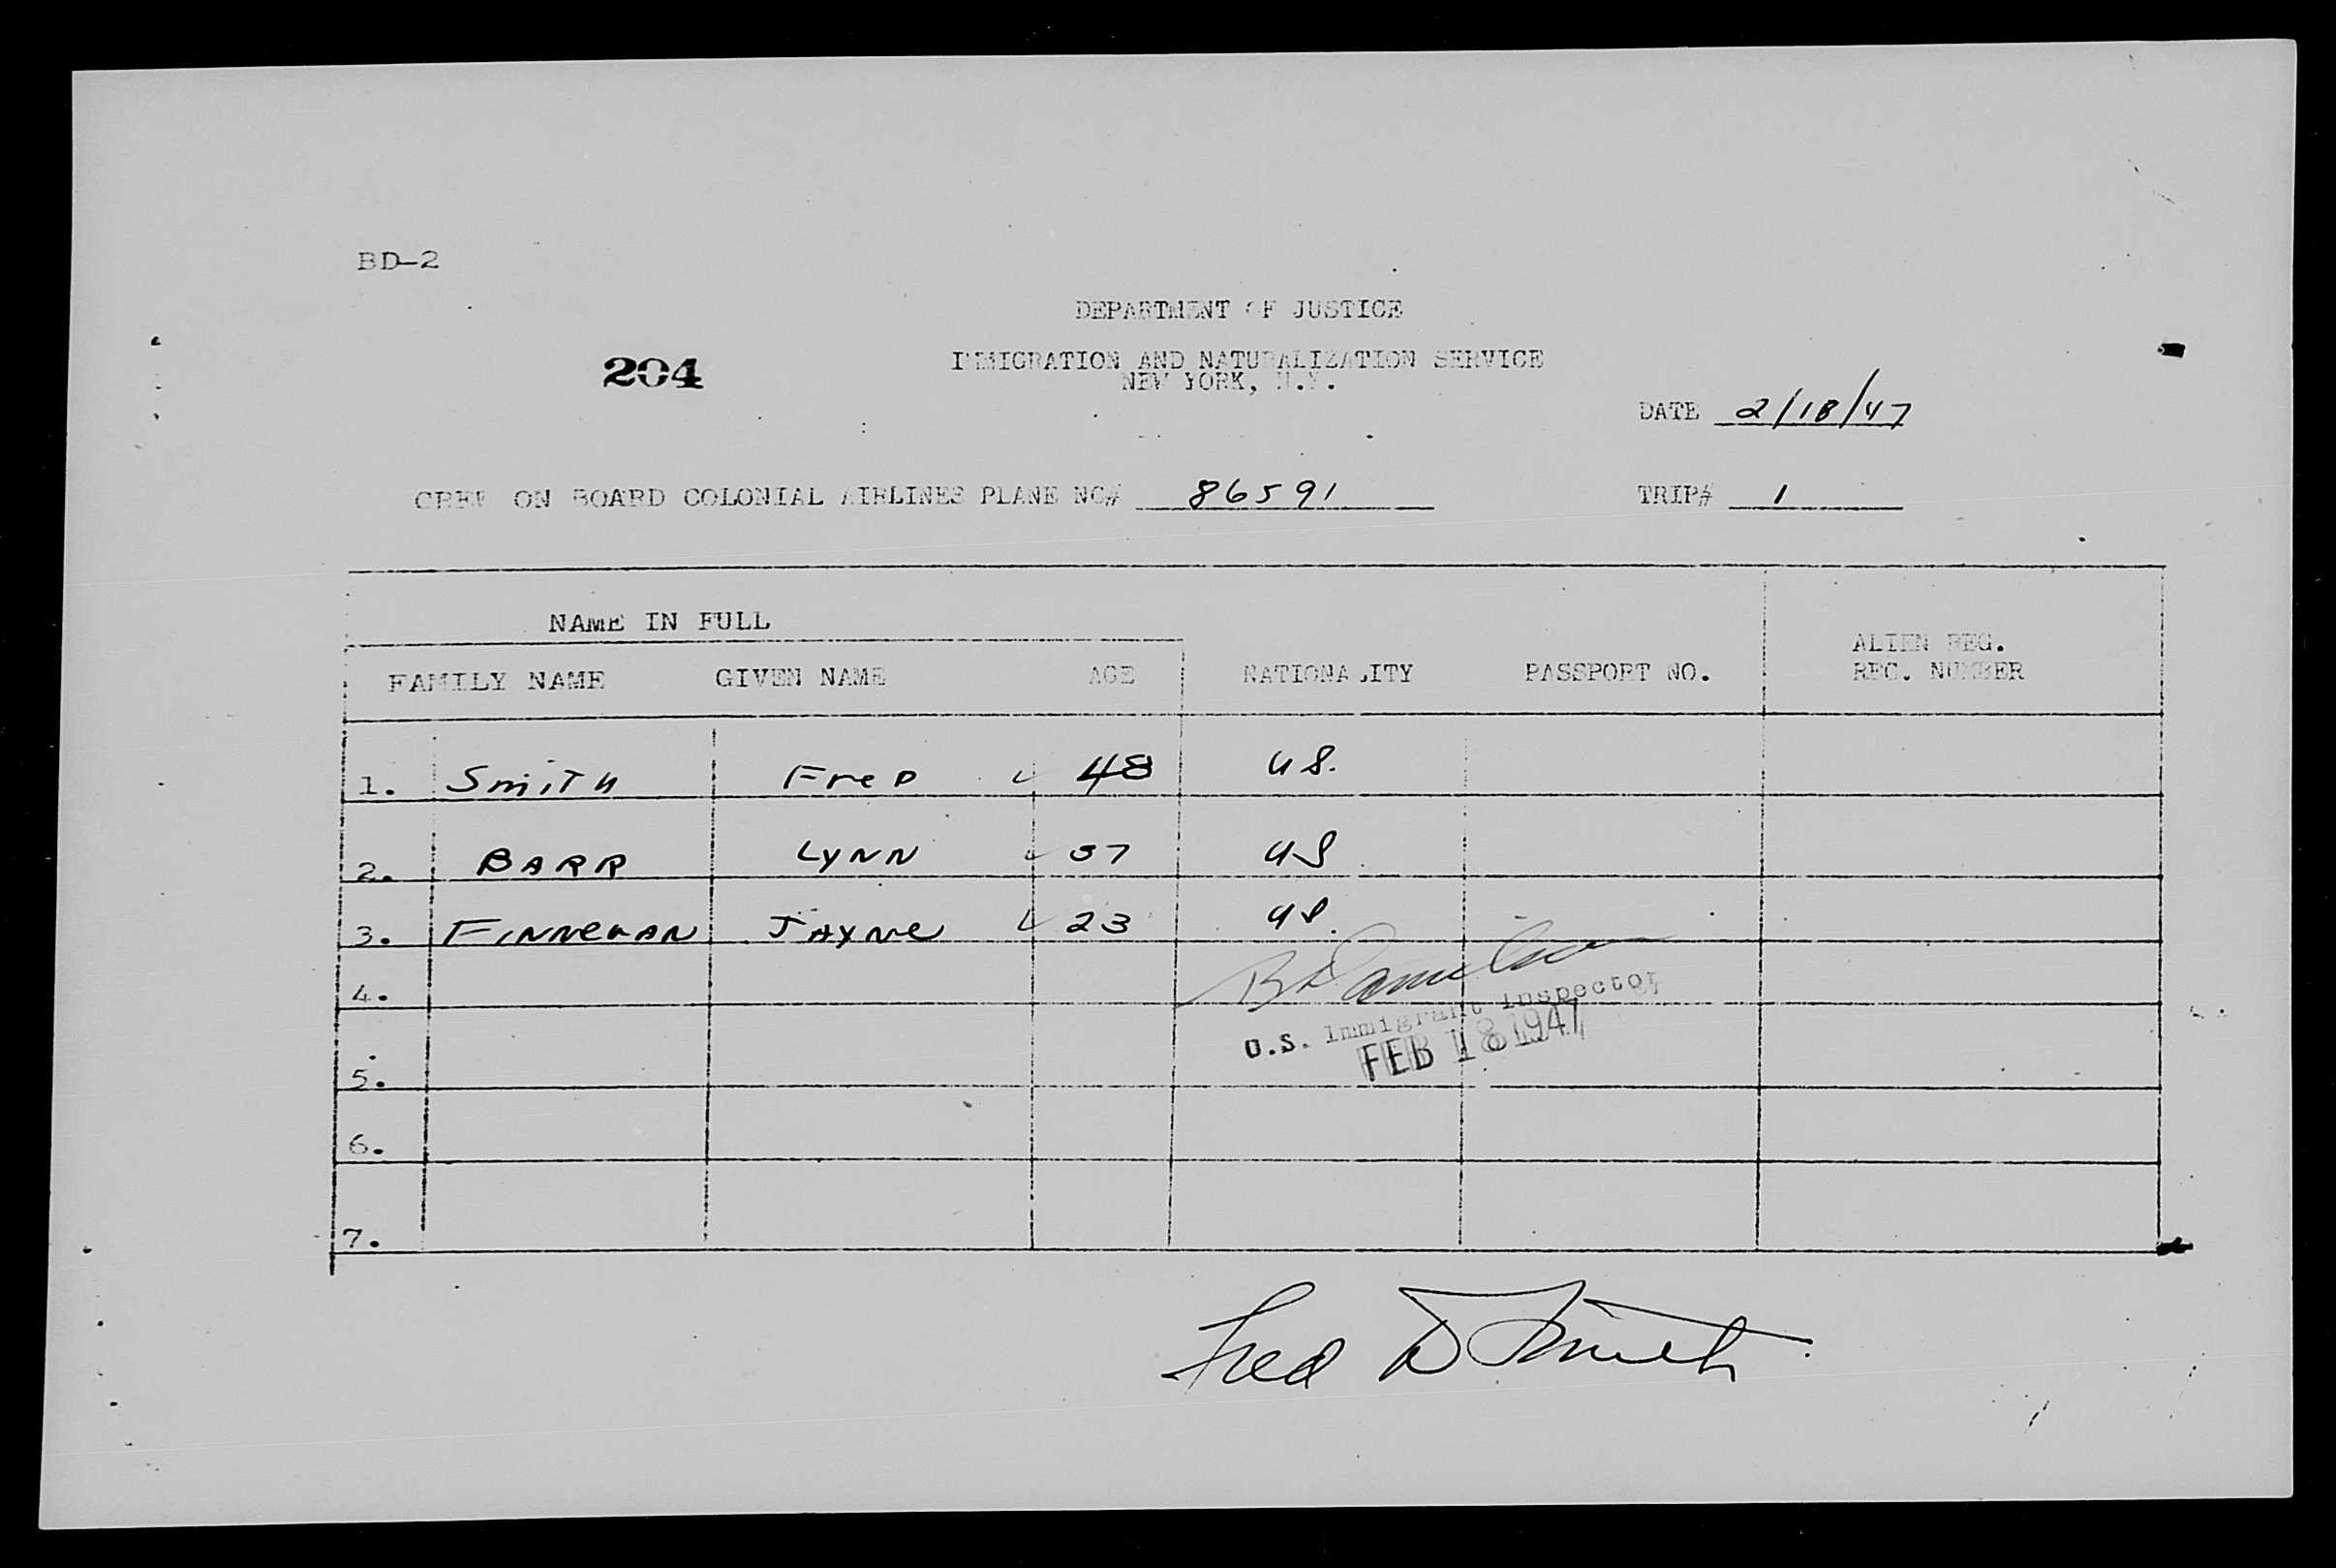 BD-2
DEPARTMENT OF JUSTICE
204
IMMIGRATION AND NATURALIZATION SERVICE
NEW YORK, N.Y.
DATE 2/18/47
CREW ON BOARD COLONIAL AIRLINES PLANE NC# 86591 TRIP# 1
NAME IN FULL
FAMILY NAME GIVEN NAME AGE NATIONALITY PASSPORT NO. ALIEN REG.
REC. NUMBER
1. Smith Fred 48 US.
2. BARR LYNN 37 US
3. FINNEGAN JAYNE 23 US.
4.
U.S. Immigrant Inspector
FEB 18 1947
5.
6.
7.
Fred D Smith